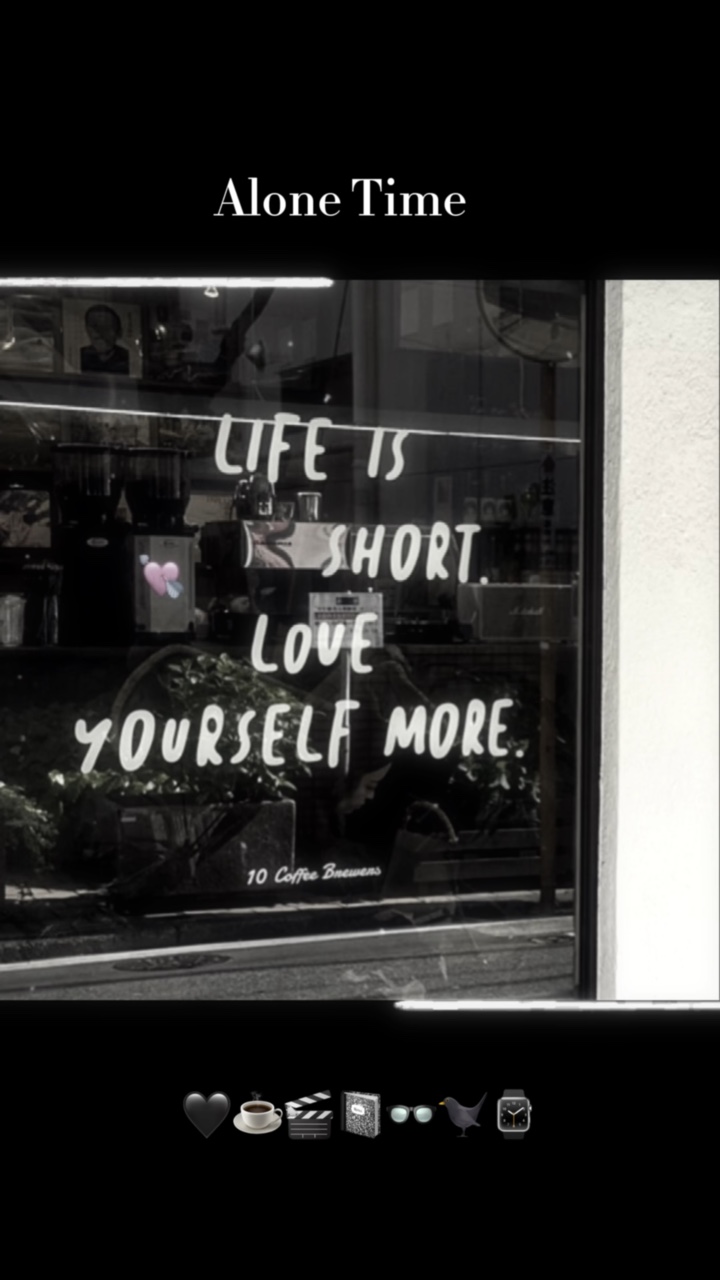 Alone Time
LIFE IS
SHORT.
LOVE
YOURSELF MORE.
10 Coffee Brewers